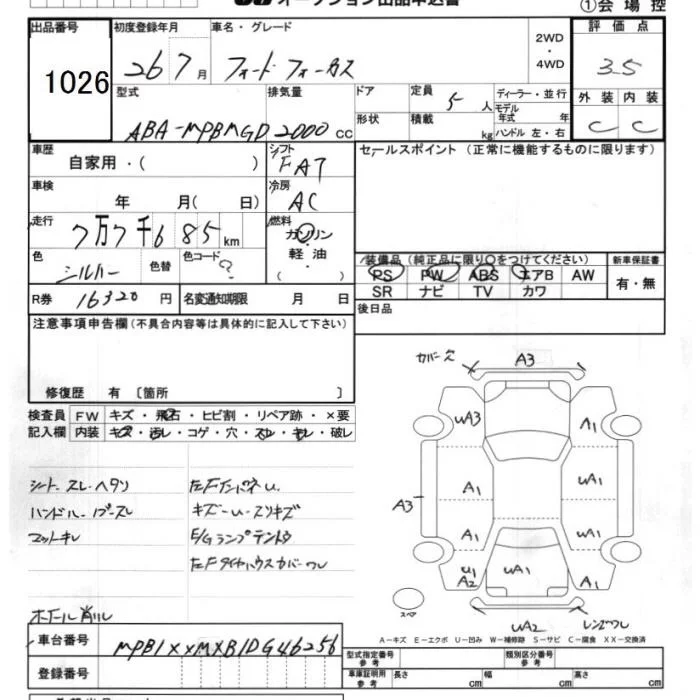 オークション出品申込書
①会場控
出品番号 初度登録年月 車名・グレード 評価点
1026 26 7月 フォード フォーカス 2WD ・ 4WD 3.5
外装 内装
C C
型式 排気量 ドア 定員 5人 ディーラー・並行
ABA-MPBMGD 2000CC 形状 積載 kg モデル年式 年
ハンドル 左・右
車歴 自家用・( ) シフト FAT セールスポイント (正常に機能するものに限ります)
車検 年 月( 日) 冷房 AC
走行 7万7千685km 燃料 ガソリン・軽油・( )
色 シルバー 色替 色コード ?
装備品 (純正品に限り○をつけてください) 新車保証書
PS PW ABS エアB AW 有・無
SR ナビ TV カワ
R券 16320円 名変通知期限 月 日
後日品
注意事項申告欄(不具合内容等は具体的に記入して下さい)
修復歴 有 〔箇所 〕
検査員 FW キズ・飛石・ヒビ割・リペア跡・×要
記入欄 内装 キズ・汚レ・コゲ・穴・スレ・キレ・破レ
シートスレ・ヘタリ
ハンドル
マットキレ
キズ・U・スリキズ
E/Gランプテントウ
左Fタイヤハウスカバーワレ
カバー穴 A3
UA3 A1
A1 UA1
A3
A1 UA1
U1 A2 UA1 A1
スペア
UA2 レンズワレ
A-キズ E-エクボ U-凹み W-補修跡 S-サビ C-腐食 XX-交換済
車台番号 MPB1XXMXB1DG46256
登録番号
型式指定番号 参考 類別区分番号 参考
車庫証明用 参考 長さ cm 幅 cm 高さ cm